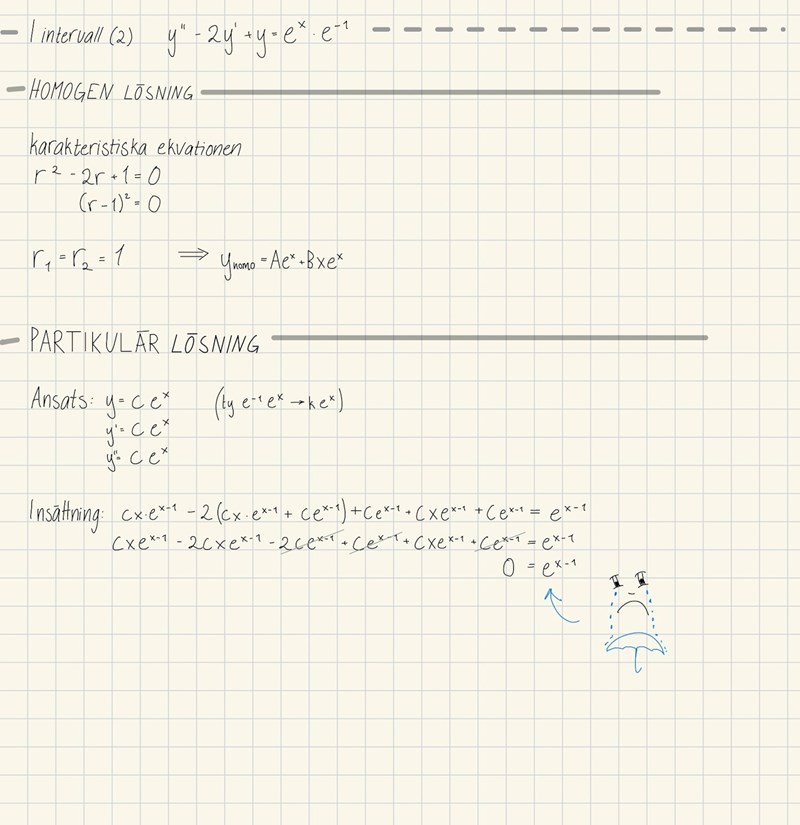 I intervall (2) y'' - 2y' + y = eˣ · e⁻¹
HOMOGEN LÖSNING
karakteristiska ekvationen
r² - 2r + 1 = 0
(r-1)² = 0
r₁ = r₂ = 1 ⟹ yₕₒₘₒ = Aeˣ + Bxeˣ
PARTIKULÄR LÖSNING
Ansats: y = C eˣ (ty e⁻¹ eˣ → k eˣ)
y' = C eˣ
y'' = C eˣ
Insättning: Cx·eˣ⁻¹ - 2(Cx·eˣ⁻¹ + Ceˣ⁻¹) + Ceˣ⁻¹ + Cxeˣ⁻¹ + Ceˣ⁻¹ = eˣ⁻¹
Cxeˣ⁻¹ - 2Cxeˣ⁻¹ - 2Ceˣ⁻¹ + Ceˣ⁻¹ + Cxeˣ⁻¹ + Ceˣ⁻¹ = eˣ⁻¹
0 = eˣ⁻¹